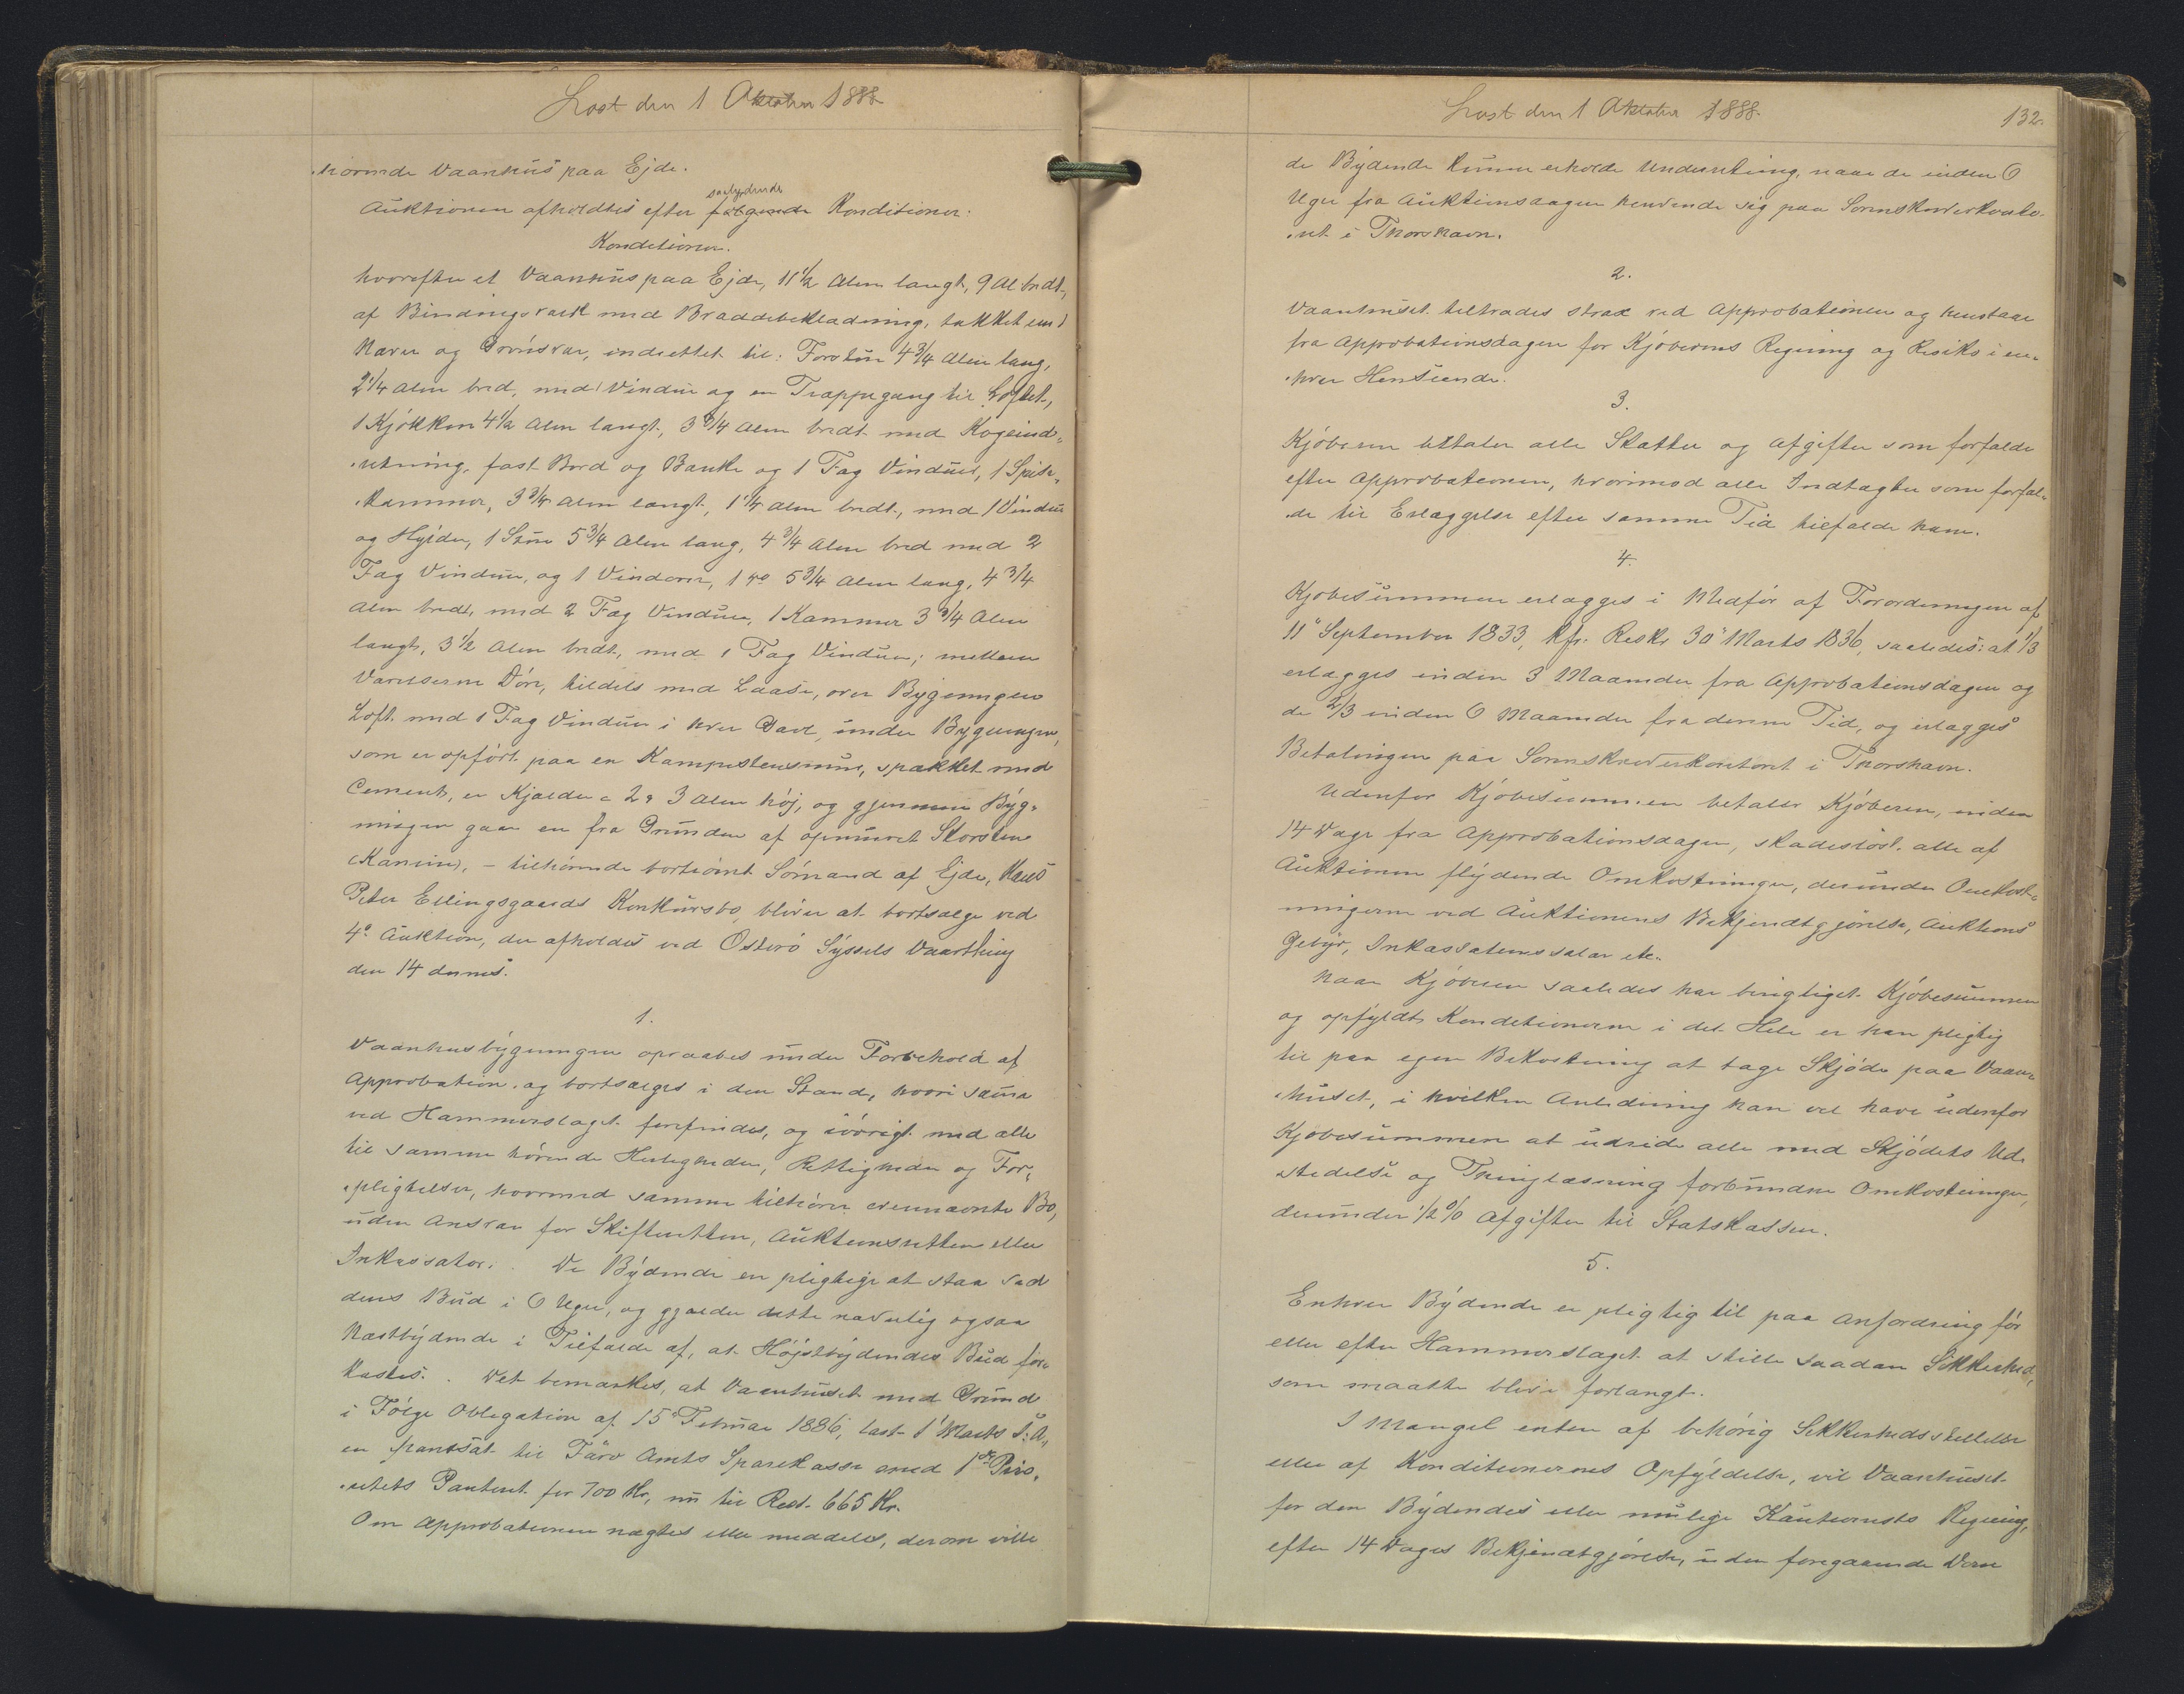 Læst den 1 Oktober 1888.
hörende Vaanhus paa Ejde.
saalydende
Auktionen afholdtes efter følgende Konditioner:
Konditioner.
hvorefter et Vaanhus paa Ejde, 11½ Alen langt, 9 Al bredt,
af Bindingsværk med Bræddebeklædning, tækket med
Næver og Grönsvær, indrettet til: Forstue 4¾ Alen lang,
2¼ Alen bred, med 1 Vindue og en Trappegang til Loftet,
1 Kjøkken 4½ Alen langt, 3¾ Alen bredt med Kogeind-
retning, fast Bord og Bænke og 1 Fag Vinduer, 1 Spise-
kammer, 3¾ Alen langt, 1¼ Alen bredt, med 1 Vindue
og Hylder, 1 Stue 5¾ Alen lang, 4¾ Alen bred med 2
Fag Vinduer, og 1 Vindovn, 1 do 5¾ Alen lang, 4¾
Alen bred, med 2 Fag Vinduer, 1 Kammer 3¾ Alen
langt, 3½ Alen bredt, med 1 Fag Vinduer; mellem
Værelserne Döre, tildels med Laase, over Bygningen
Loft med 1 Fag Vinduer i hver Gavl, under Bygningen,
som er opfört paa en Kampestensmur, spækket med
Cement, er Kjælder c 2 a 3 Alen höj, og gjennem Byg-
ningen gaar en fra Grunden af opmuret Skorsten
(Kamin), - tilhörende bortrömt Sömand af Ejde, Hans
Peter Ellingsgaards Konkursbo, bliver at bortsælge ved
4de Auktion, der afholdes ved Österö Syssels Vaarthing
den 14 dennes.
1.
Vaanhusbygningen opraabes under Forbehold af
Approbation, og bortsælges i den Stand, hvori samme
ved Hammerslaget forefindes, og iövrigt med alle
til samme hörende Herligheder, Rettigheder og For-
pligtelser, hvormed samme tilhörer ovennævnte Bo,
uden Ansvar for Skifteretten, Auktionsretten eller
Inkassator. De Bydende ere pligtige at staa ved
deres Bud i 6 Uger, og gjælder dette navnlig ogsaa
Næstbydende i Tilfælde af, at Højstbydendes Bud for-
kastes. Det bemærkes, at Vaanhuset med Grund
i Følge Obligation af 15de Februar 1886, læst 1' Marts s: A,
er pantsat til Færø Amts Sparekasse med 1ste Prio-
ritets Panteret for 700 Kr, nu til Rest 665 Kr.
Om Approbationen nægtes eller meddeles, derom ville
Læst den 1 Oktober 1888.
132.
de Bydende kunne erholde Underretning, naar de inden 6
Uger fra Auktionsdagen henvende sig paa Sorenskriverkonto-
ret i Thorshavn.
2.
Vaanhuset tiltrædes strax ved Approbationen og henstaar
fra Approbationsdagen for Kjöberens Regning og Risiko i en-
hver Henseende.
3.
Kjöberen udtaler alle Skatter og Afgifter som forfalde
efter Approbationen, hvorimod alle Indtægter som forfal-
de til Erlæggelse efter samme Tid tilfalde ham.
4.
Kjöbesummen erlægges i Medför af Forordningen af
11' September 1833, kfr. Reskr 30' Marts 1836, saaledes: at 1/3
erlægges inden 3 Maaneder fra Approbationsdagen og
de 2/3 inden 6 Maaneder fra denne Tid, og erlægges
Betalingen paa Sorenskriverkontoret i Thorshavn.
Udenfor Kjöbesummen betaler Kjöberen, inden
14 Dage fra Approbationsdagen, skadeslöst alle af
Auktionen flydende Omkostninger, derunder Omkost-
ningerne ved Auktionens Bekjendtgjörelse, Auktions
Gebyr, Inkassationssalær etc.
Naar Kjöberen saaledes har berigtiget Kjöbesummen
og opfyldt Konditionerne i det Hele er han pligtig
til paa egen Bekostning at tage Skjöde paa Vaan-
huset, i hvilken Anledning han vil have udenfor
Kjöbesummen at udrede alle med Skjödets Ud-
stedelse og Thinglæsning forbundne Omkostninger,
derunder ½% Afgiften til Statskassen.
5.
Enhver Bydende er pligtig til paa Anfordring för
eller efter Hammerslaget at stille saadan Sikkerhed,
som maatte blive forlangt.
I Mangel enten af behörig Sikkerhedsstillelse
eller af Konditionernes Opfyldelse, vil Vaanhuset
for den Bydendes eller mulige Kautionists Regning,
efter 14 Dages Bekjendtgjörelse, uden foregaaende Dom